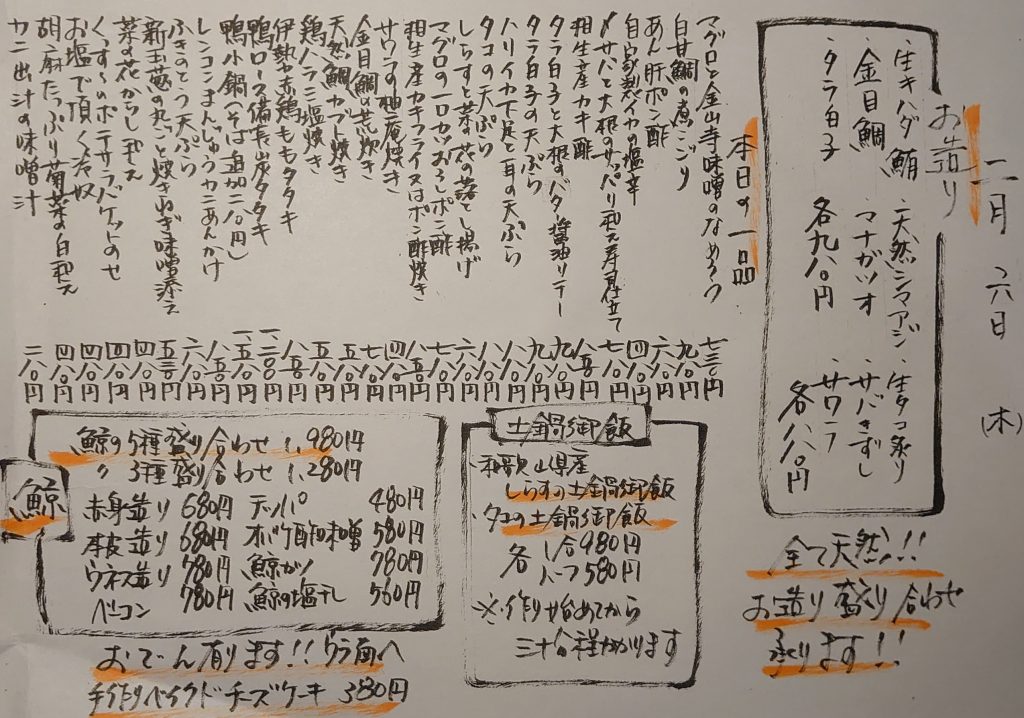 二月 六日 (木)
お造り
・生キハダ鮪 ・天然シマアジ ・生タコ炙り
・金目鯛 ・マナガツオ ・サバきずし
・タラ白子 ・サワラ
各九八〇円 各八八〇円
全て天然!!
お造り盛り合わせ
承ります!!
本日の一品
マグロと金山寺味噌のなめろう 七三〇円
白甘鯛の煮こごり 九八〇円
あん肝ポン酢 六八〇円
自家製イカの塩辛 四八〇円
〆サバと大根のサッパリ和え寿司仕立て 七八〇円
相生産カキ酢 八五〇円
タラ白子と大根のバター醤油ソテー 九八〇円
タラ白子の天ぷら 九八〇円
ハリイカ下足と耳の天ぷら 八八〇円
タコの天ぷら 八八〇円
しらすと菜の花の落とし揚げ 六八〇円
マグロの一口カツおろしポン酢 七八〇円
相生産カキフライ又はポン酢焼き 八八〇円
サワラの柚庵焼き 四八〇円
金目鯛の荒炊き 七八〇円
天然鯛カブト焼き 五八〇円
鶏ハラミ塩焼き 五八〇円
伊勢赤鶏ももタタキ 八五〇円
鴨ロース備長炭タタキ 一二八〇円
鴨小鍋(そば追加二八〇円) 一五八〇円
レンコンまんじゅうカニあんかけ 八五〇円
ふきのとう天ぷら 六八〇円
新玉葱の丸ごと焼きねぎ味噌添え 五三〇円
菜の花からし和え 四八〇円
くっすーのポテサラバゲットのせ 四八〇円
お塩で頂く冷奴 四八〇円
胡麻たっぷり菊菜の白和え 四八〇円
カニ出汁の味噌汁 二八〇円
土鍋御飯
・和歌山県産
しらすの土鍋御飯
・タコの土鍋御飯
各 1合980円
ハーフ580円
※作り始めてから
三十分程かかります
鯨
鯨の5種盛り合わせ 1,980円
〃 3種盛り合わせ 1,280円
赤身造り 680円 天ぷら 480円
本皮造り 680円 オバケ酢味噌 580円
ウネス造り 780円 鯨カツ 780円
ベーコン 780円 鯨の塩干し 560円
おでん有ります!!ウラ面へ
手作りベイクドチーズケーキ 380円